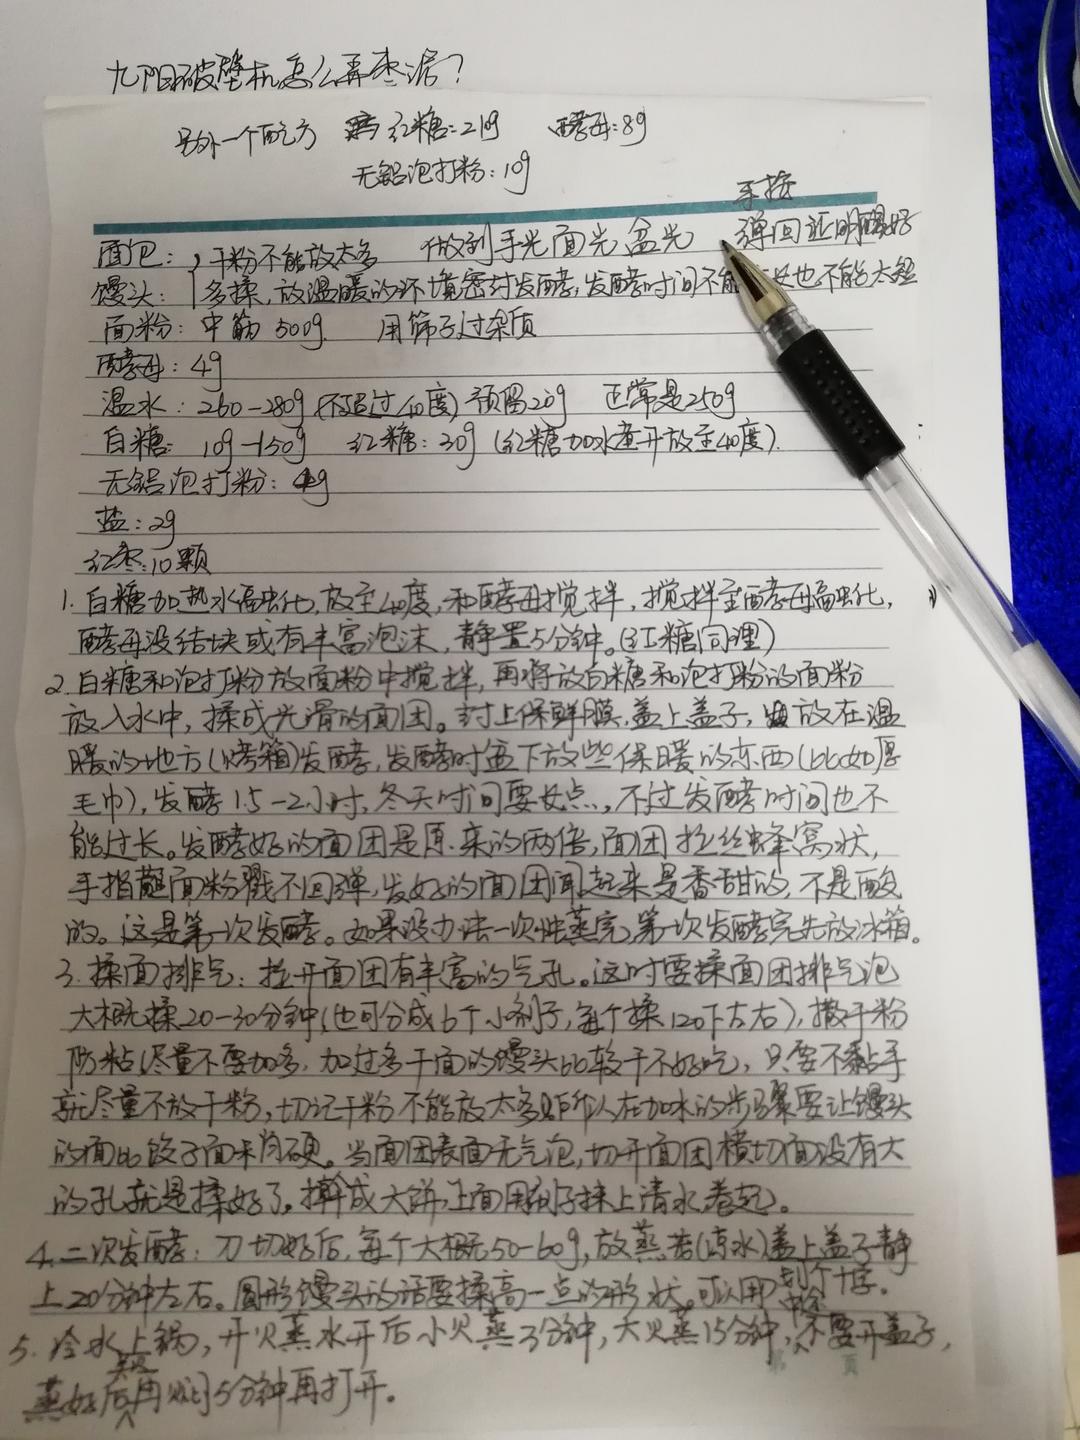 九阳破壁机怎么弄枣泥？
另外一个配方 红糖：21g 酵母：8g
无铝泡打粉：10g
手按
面包：干粉不能放太多 做到手光面光盆光 弹回证明醒好
馒头：多揉，放温暖的环境密封发酵，发酵时间不能 长也不能太短
面粉：中筋 500g 用筛子过杂质
酵母：4g
温水：260-280g（不超过40度）预留20g 正常是250g
白糖：10g-150g 红糖：30g（红糖加水煮开放至40度）.
无铝泡打粉：4g
盐：2g
红枣：10颗
1. 白糖加热水融化，放至40度，和酵母搅拌，搅拌至酵母融化，
酵母没结块或有丰富泡沫，静置5分钟。（红糖同理）
2. 白糖和泡打粉放面粉中搅拌，再将放白糖和泡打粉的面粉
放入水中，揉成光滑的面团。封上保鲜膜，盖上盖子，放在温
暖的地方（烤箱）发酵，发酵时盆下放些保暖的东西（比如厚
毛巾），发酵1.5-2小时，冬天时间要长点，不过发酵时间也不
能过长。发酵好的面团是原来的两倍，面团拉丝蜂窝状，
手指蘸面粉戳不回弹，发好的面团闻起来是香甜的，不是酸
的。这是第一次发酵。如果没办法一次性蒸完，第一次发酵完先放冰箱。
3. 揉面排气：拉开面团有丰富的气孔。这时要揉面团排气泡
大概揉20-30分钟（也可分成6个小剂子，每个揉120下左右），撒干粉
防粘（尽量不要加多，加过多干面的馒头比较干不好吃），只要不黏手
就尽量不放干粉，切记干粉不能放太多，所以在加水的步骤要让馒头
的面比饺子面来肖硬。当面团表面无气泡，切开面团横切面没有大
的孔就是揉好了。擀成大饼，上面用刷子抹上清水卷起。
4. 二次发酵：刀切好后，每个大概50-60g，放蒸 （凉水）盖上盖子静
上20分钟左右。圆形馒头的话要揉高一点的形状。可以用刀划个十字。
5. 冷水上锅，开火蒸水开后小火蒸3分钟，大火蒸15分钟，中途不要开盖子，
蒸好后关火再焖5分钟再打开。
第 页